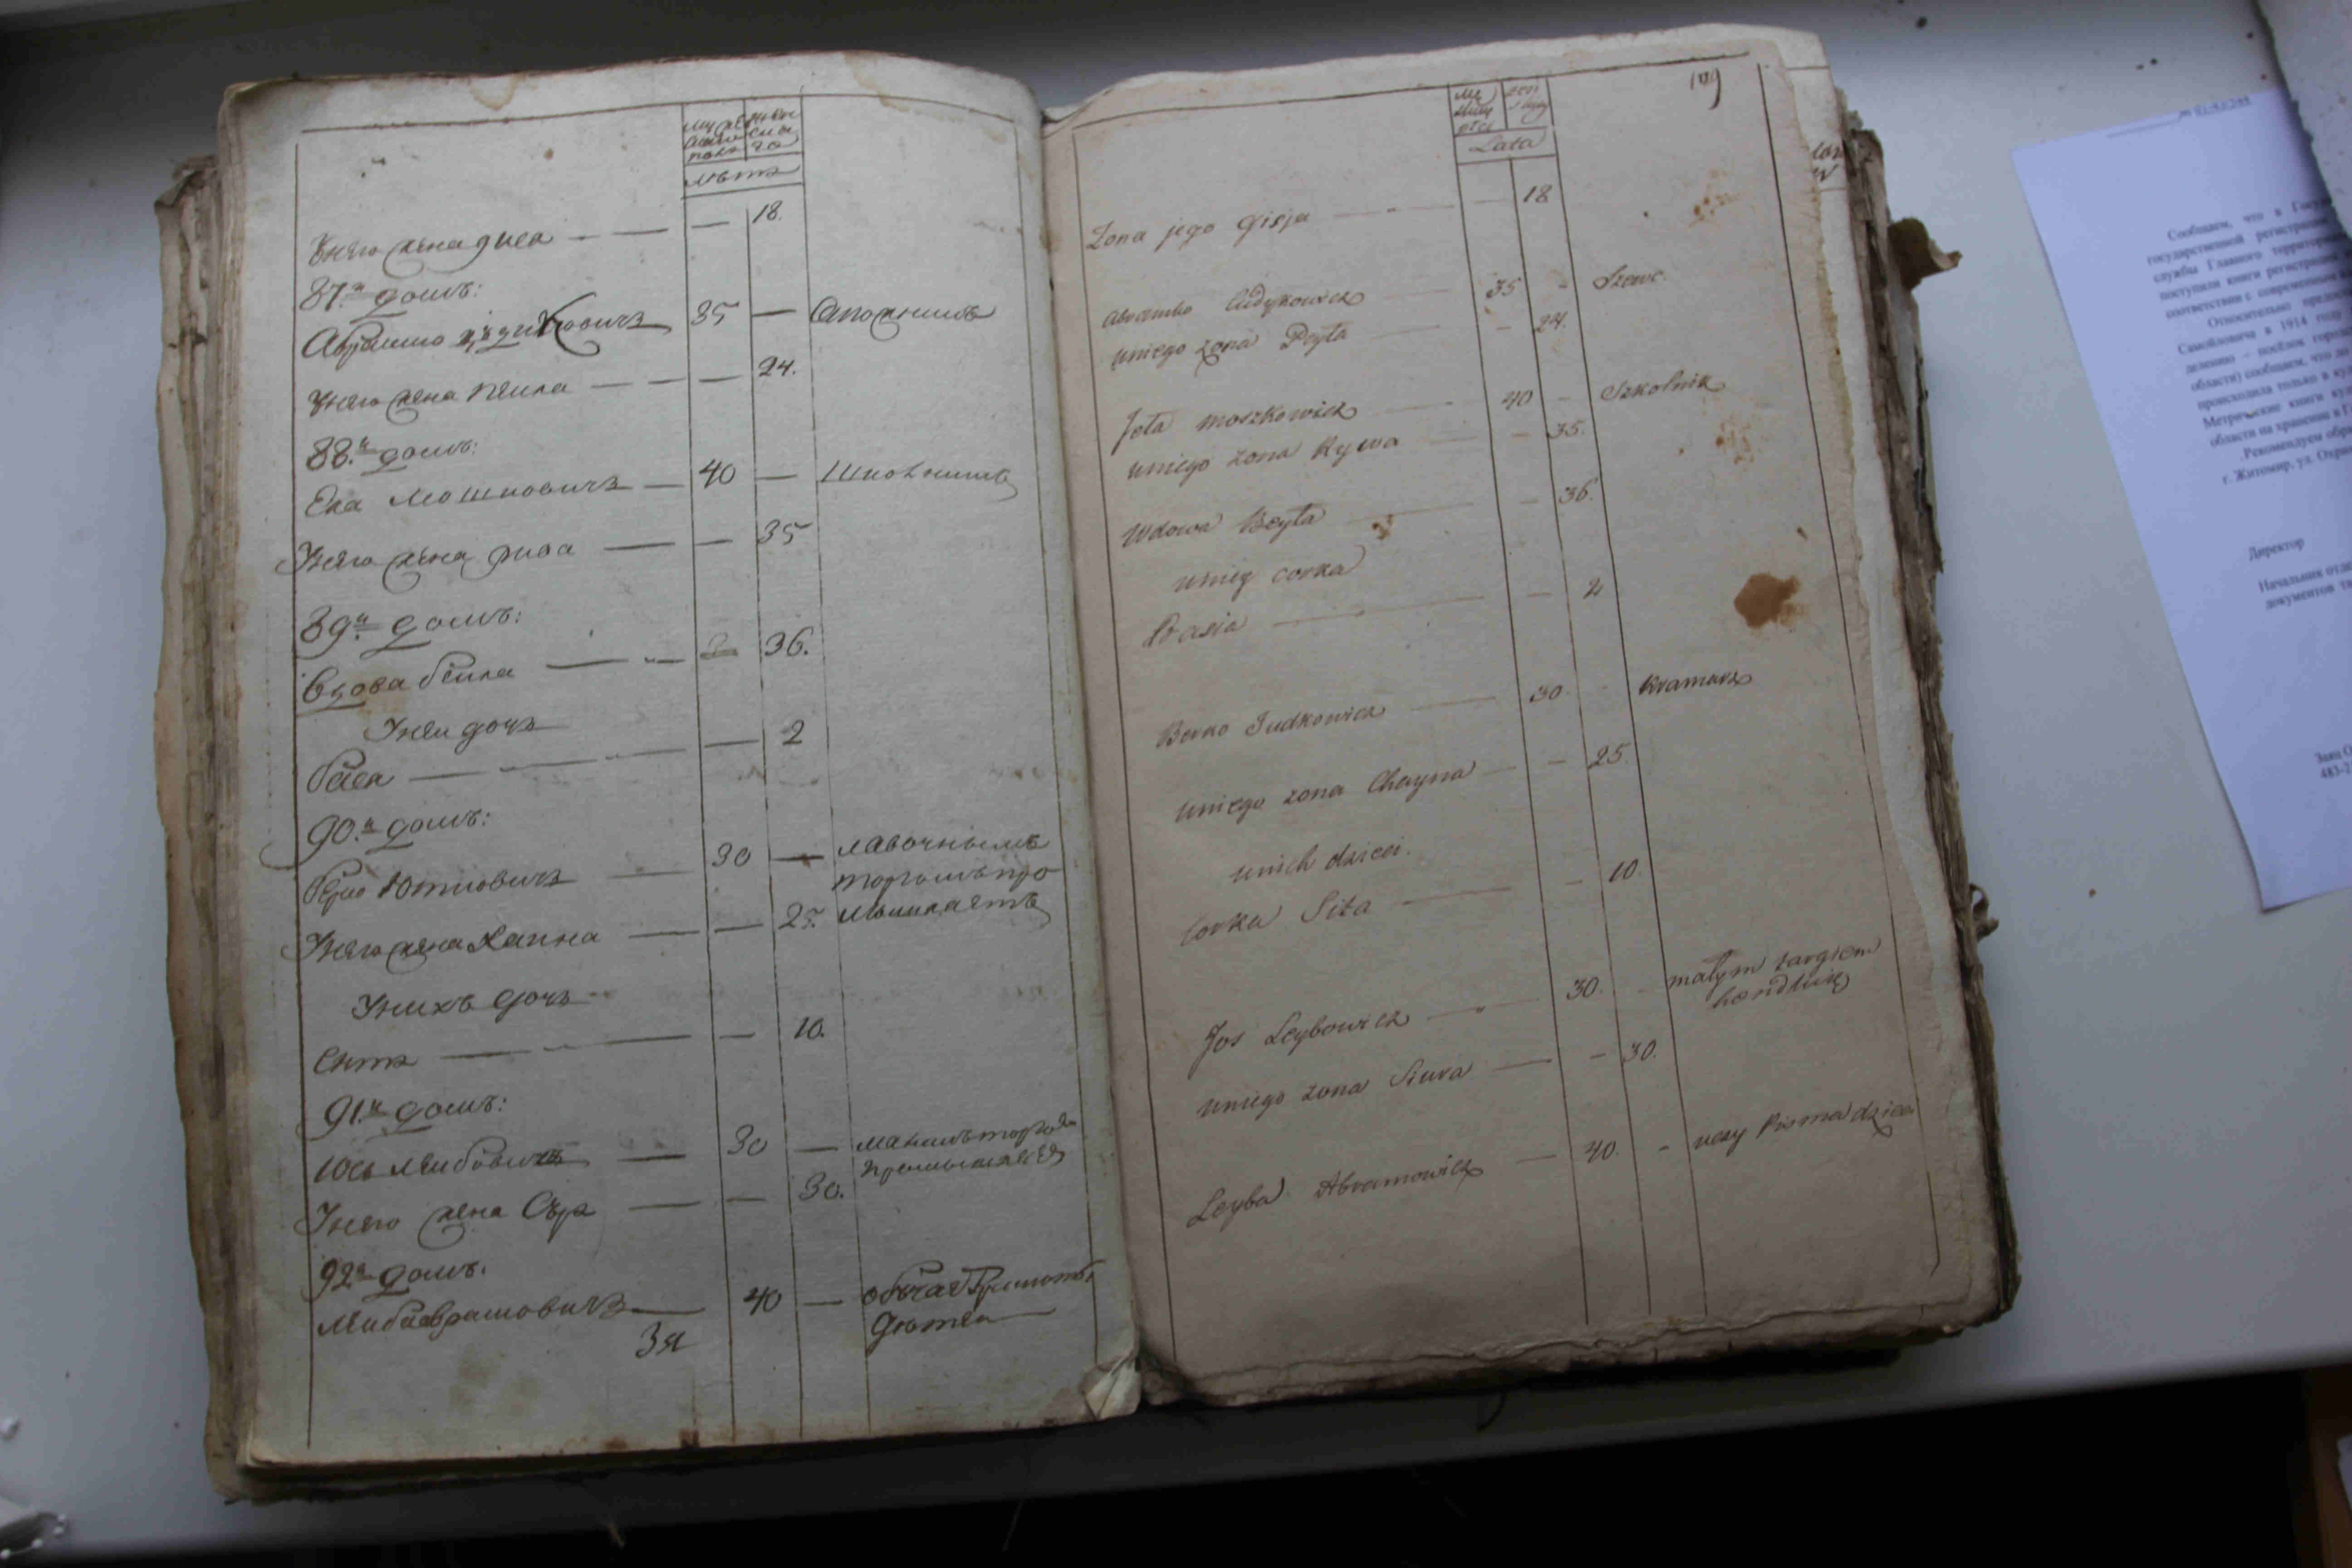 лѣтъ
У него жена Гися — — — 18.
87.й домъ:
Абрамко 35 — Сапожникъ
У него жена Пейла — — — 24.
88.й домъ:
Ела Мошковичъ — 40 — Школникъ
У него жена Рива — — 35
89.й домъ:
Вдова Бейла — — 36.
У неи дочь
Бася — — — 2
90.й домъ:
Берко Ютковичъ — 30 — лавочнымъ
торгомъ про
мышляетъ
У него жена Хаина — — 25.
У нихъ дочь
Сита — — — 10.
91.й домъ:
Юсь Лейбовичъ — 30 — малимъ торгом
промышляет
У него жена Сура — — 30.
92й домъ.
Лейба Аврамовичъ — 40 — обучает грамоте
дютей
За
119
Lata
Zona jego Gisja — — 18
Abramko 35 - Szewc.
uniego zona Peyta — - 24.
Jeta Moszkowicz — 40 - Szkolnik
uniego zona Rywa — - 35.
Wdowa Beyta — - 36.
unieg corka
Basia — — 2
Berko Judkowicz — 30. Kramarz
uniego zona Chayna — - 25.
unich dzieci.
Corka Sita — - 10.
Jos Leybowicz — 30. małym targiem
handluię
uniego zona Siura — - 30.
Leyba Abramowicz — 40. - uczy Pisma dzieci
Сообщаем, что в
государственной регистрации
службы Главного
поступили книги регистрации
соответствии с современным
Относительно
Самойловича в 1914 году
области) сообщаем, что
происходила только в
Метрические книги
области на хранении в
Рекомендуем
г. Житомир, ул.
Директор
Начальник
документов